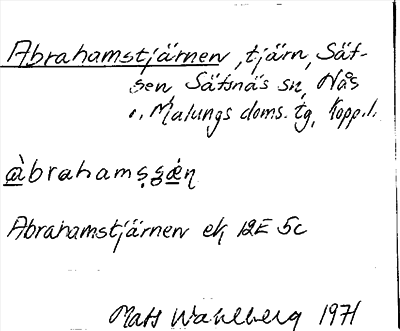 Abrahamstjärnen, tjärn, Sät-
sen, Sätsnäs sn, Nås
o. Malungs doms. tg, Kopp. l.
Abrahamstjärnen ek 12E 5c
Mats Wahlberg 1971